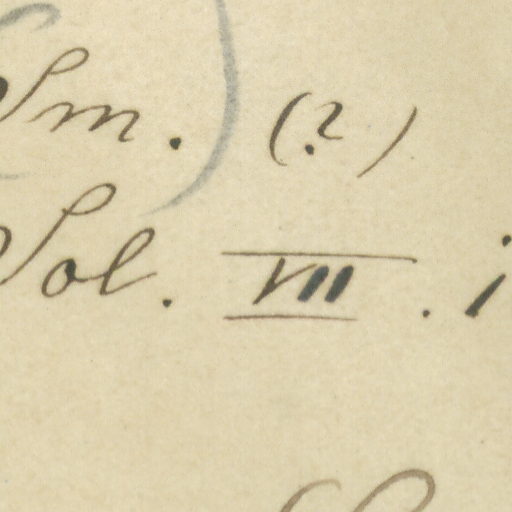 Sm. (?)
Sol. VII. i